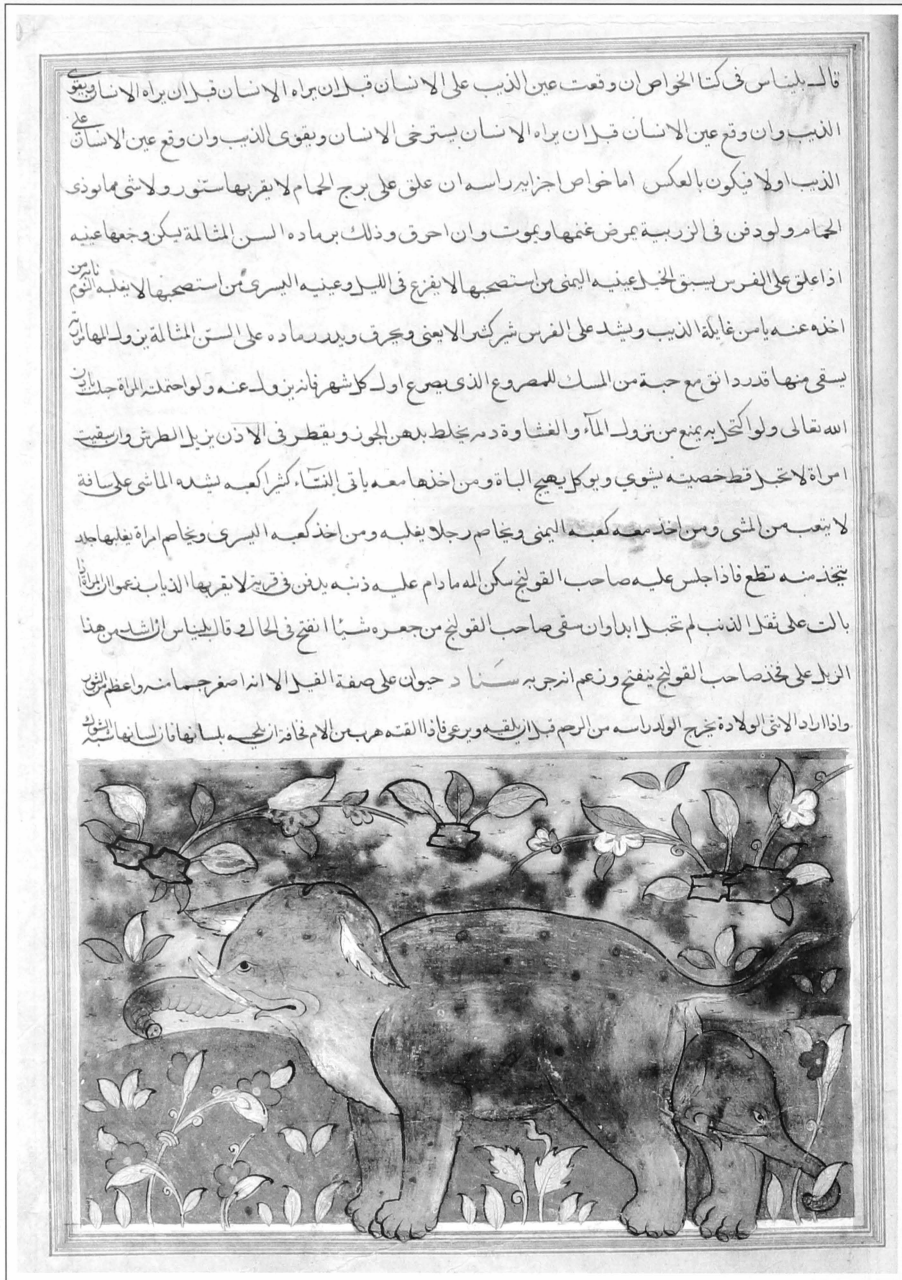 قال بليناس فى كتاب الخواص ان وقعت عين الذيب على الانسان قبل ان يراه الانسان قبل ان يراه الانسان ويقوى
الذيب وان وقع عين الانسان قبل ان يراه الانسان يسترخى الانسان ويقوى الذيب وان وقع عين الانسان على
الذيب اولا فيكون بالعكس اما خواص اجزايه راسه ان علق على برج الحمام لا يقربها ستنور ولا شى مما يوذى
الحمام ولو دفن فى الزريبة يمرض غنمها ويموت وان احرق وذلك برماده السن المثالمة يسكن وجعها عينيه
اذا علق على الفرس يسبق الخيل عينيه اليمنى من استصحبها لا يفزع فى الليل وعينيه اليسرى من استصحبها لا يغلبه النوم
اخذه عنه يامن غايلة الذيب ويشد على الفرس شركثير الا يعنى ويحرق ويدر رماده على السن المثالمة يزول المها
يسقى منها قدر دانق مع حبة من المسك للمصروع الذى يصرع اول كل شهر فانه يزول عنه ولو احتملته المراة حبلت
الله تعالى ولو اكتحل به يمنع من نزول المآء والغشاوة دمه يخلط بدهن الجوز ويقطر فى الاذن يزيل الطرش وان سقيت
امراة لا تحبل قط خصيته يشوى ويوكل يهيج الباة ومن اخذها معه ياتى النسآء كثيرا كعبه يشده الماشى على ساقه
لا يتعب من المشى ومن اخذ معه كعبه اليمنى ويخاصم رجلا يغلبه ومن اخذ كعبه اليسرى ويخاصم امراة يغلبها جلد
يتخذ منه نطع فاذا جلس عليه صاحب القولنج سكن المه مادام عليه ذنبه يدفن فى قرية لا يقربها الذياب زعموا ان المراة اذا
بالت على ثقل الذيب لم تحبل ابدا وان سقى صاحب القولنج من جعره شيئا انفتح فى الحال وقال بليناس ان شد من هذا
الزبل على فخذ صاحب القولنج ينفتح وزعم انه جربه سناد حيوان على صفة الفيل الا انه اصغر جسما منه واعظم من الثور
واذا اراد الانثى الولادة يخرج الولد راسه من الرحم قبل ان يلقيه ويرعى فاذا القته هرب من الام مخافة ان يلحسه بلسانها فان لسانها